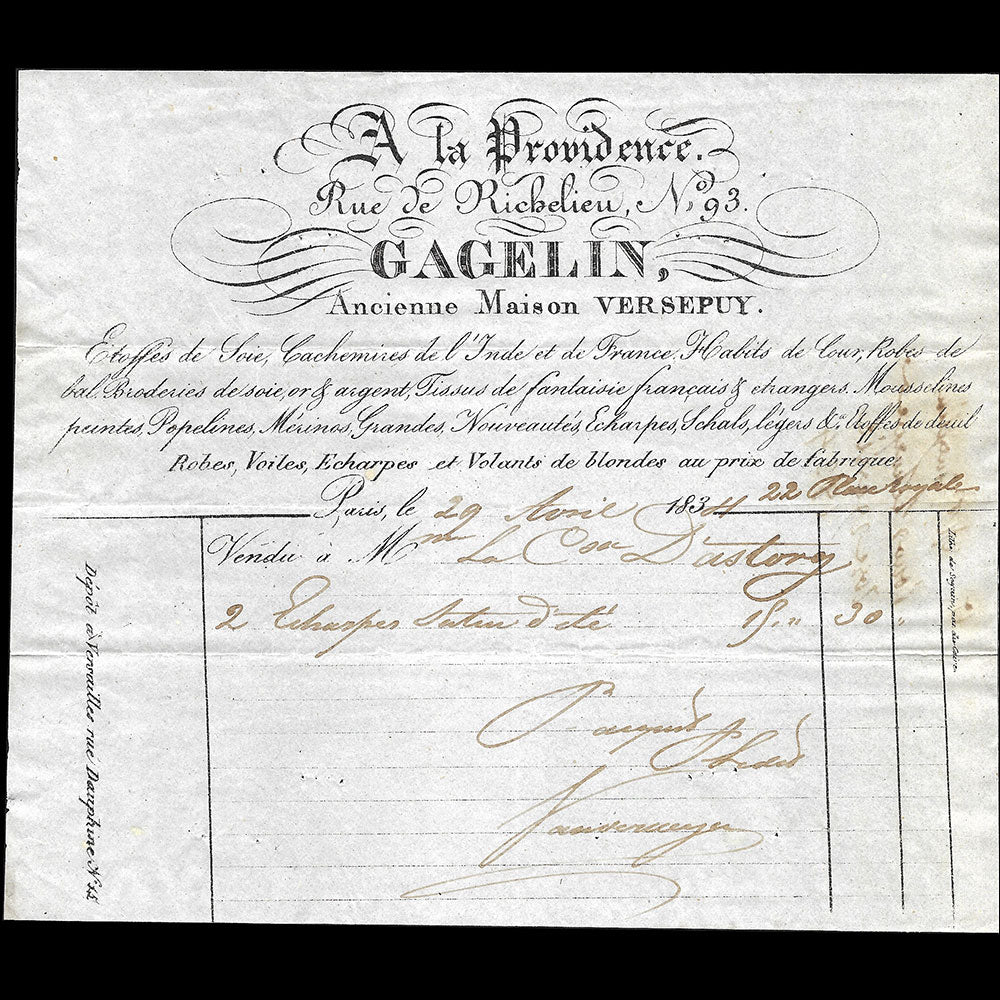 A la Providence.
Rue de Richelieu, No. 93.
GAGELIN,
Ancienne Maison VERSEPUY.
Etoffes de Soie, Cachemires de l'Inde et de France, Habits de Cour, Robes de
bal. Broderies de soie, or & argent, Tissus de fantaisie français & etrangers. Mousselines
peintes, Popelines, Mérinos, Grandes, Nouveautés, Echarpes, Schals, légers &a. Etoffes de deuil
Robes, Voiles, Echarpes et Volants de blondes au prix de fabrique.
22 Place royale
Paris, le 29 Avril 1834
Vendu à Mme La Csse D'astorg
2 Echarpes d'été 15 " 30 "
Pour acquit
Vanvermeyen
Dépôt à Versailles rue Dauphine No 11
Litho de